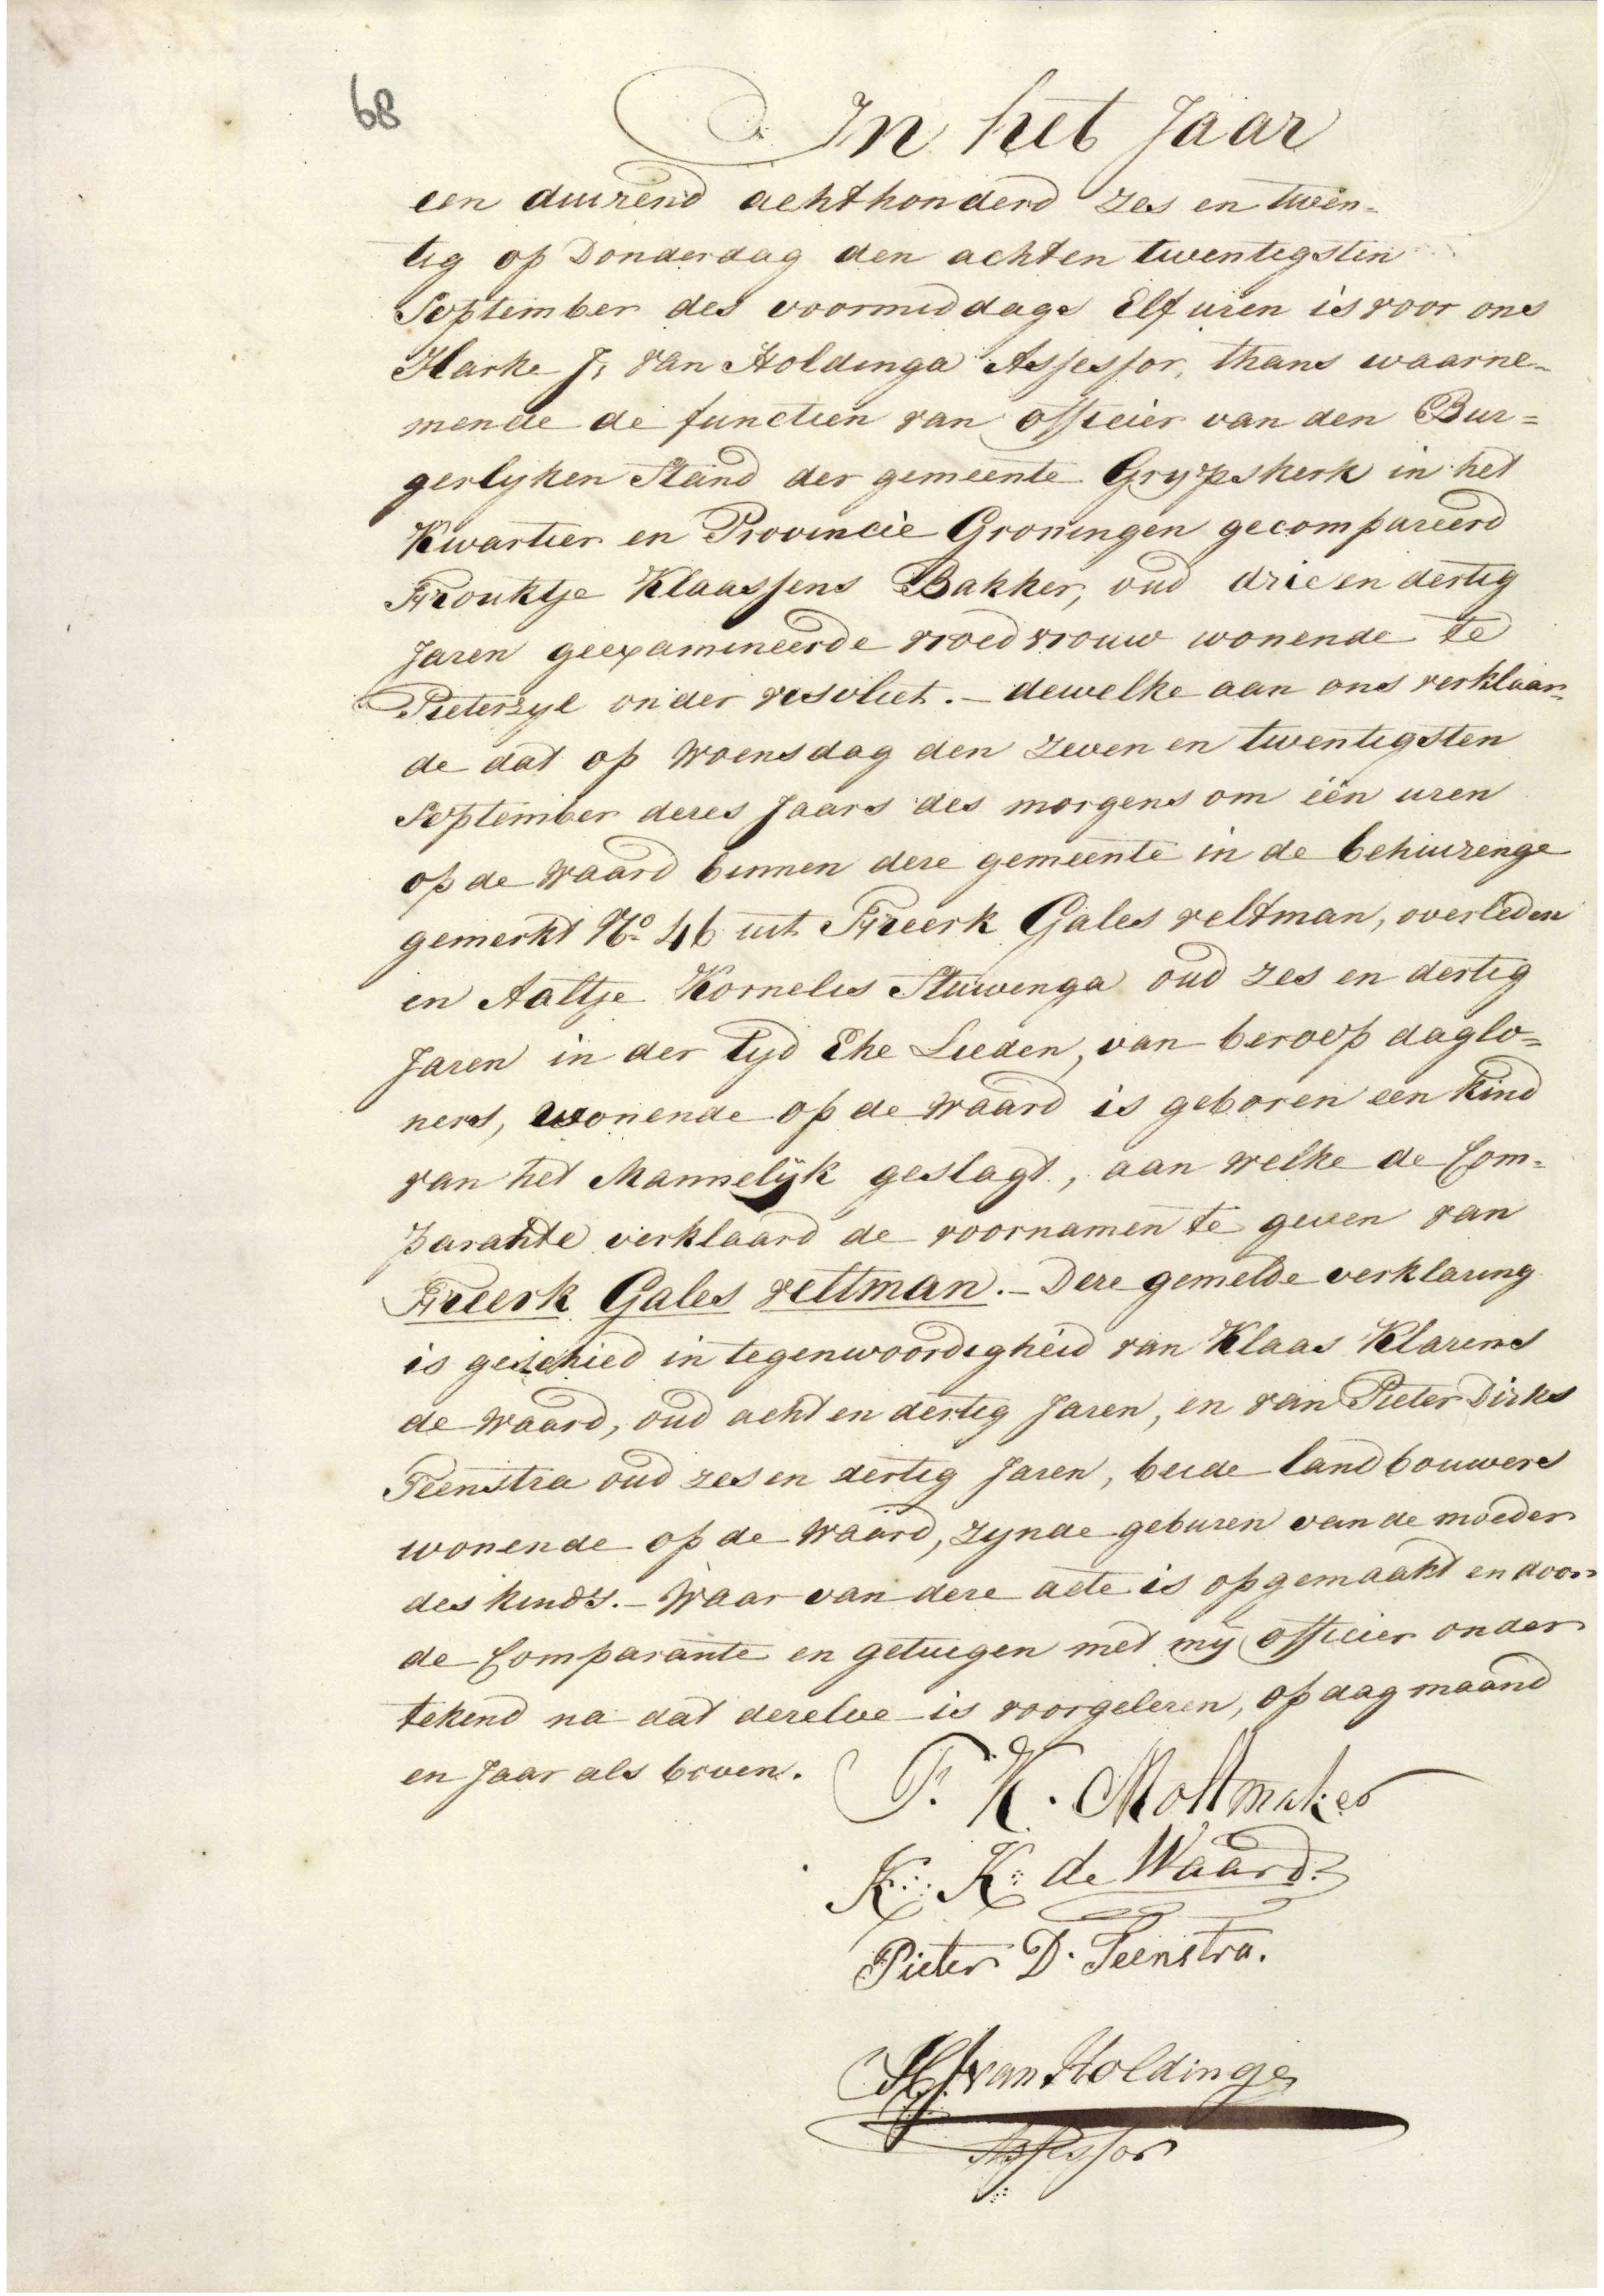 68
In het Jaar
een duizend achthonderd zes en twin-
tig op Donderdag den achten twentigsten
September des voormiddags Elf uren is voor ons
Harke J: van Holdinga Assessor, thans waarne-
mende de functien van officier van den Bur=
gerlyken Stand der gemeente Grypskerk in het
Kwartier en Provincie Groningen gecompareerd
Frouktje Klaassens Bakker, oud drie en dertig
Jaren geexamineerde vroedvrouw wonende te
Pieterzyl onder visvliet. – dewelke aan ons verklaar-
de dat op Woensdag den zeven en twentigsten
September dezes Jaars des morgens om één uren
op de waard binnen deze gemeente in de behuizenge
gemerkt No 46 uit Freerk Gales veltman, overleden
en Aaltje Kornelis Stuwenga oud zes en dertig
Jaren in der tyd Ehe Lieden, van beroep daglo=
ners, wonende op de Waard is geboren een Kind
van het Mannelijk geslagt, aan welke de Com=
parante verklaard de voornamen te geven van
Freerk Gales veltman. – Deze gemelde verklaring
is geschied in tegenwoordigheid van Klaas Klarens
de Waard, oud acht en dertig Jaren, en van Pieter Dirks
Teenstra oud zes en dertig Jaren, beide landbouwers
wonende op de Waard, zynde geburen van de moeder
des kinds. – Waar van deze acte is opgemaakt en door
de Comparante en getuigen met mij officier onder
tekend na dat dezelve is voorgelezen, op dag maand
en Jaar als boven.
F. K. Moltmaker
K: K: de Waard
Pieter D. Teenstra.
HJ van Holdinga
Assessor